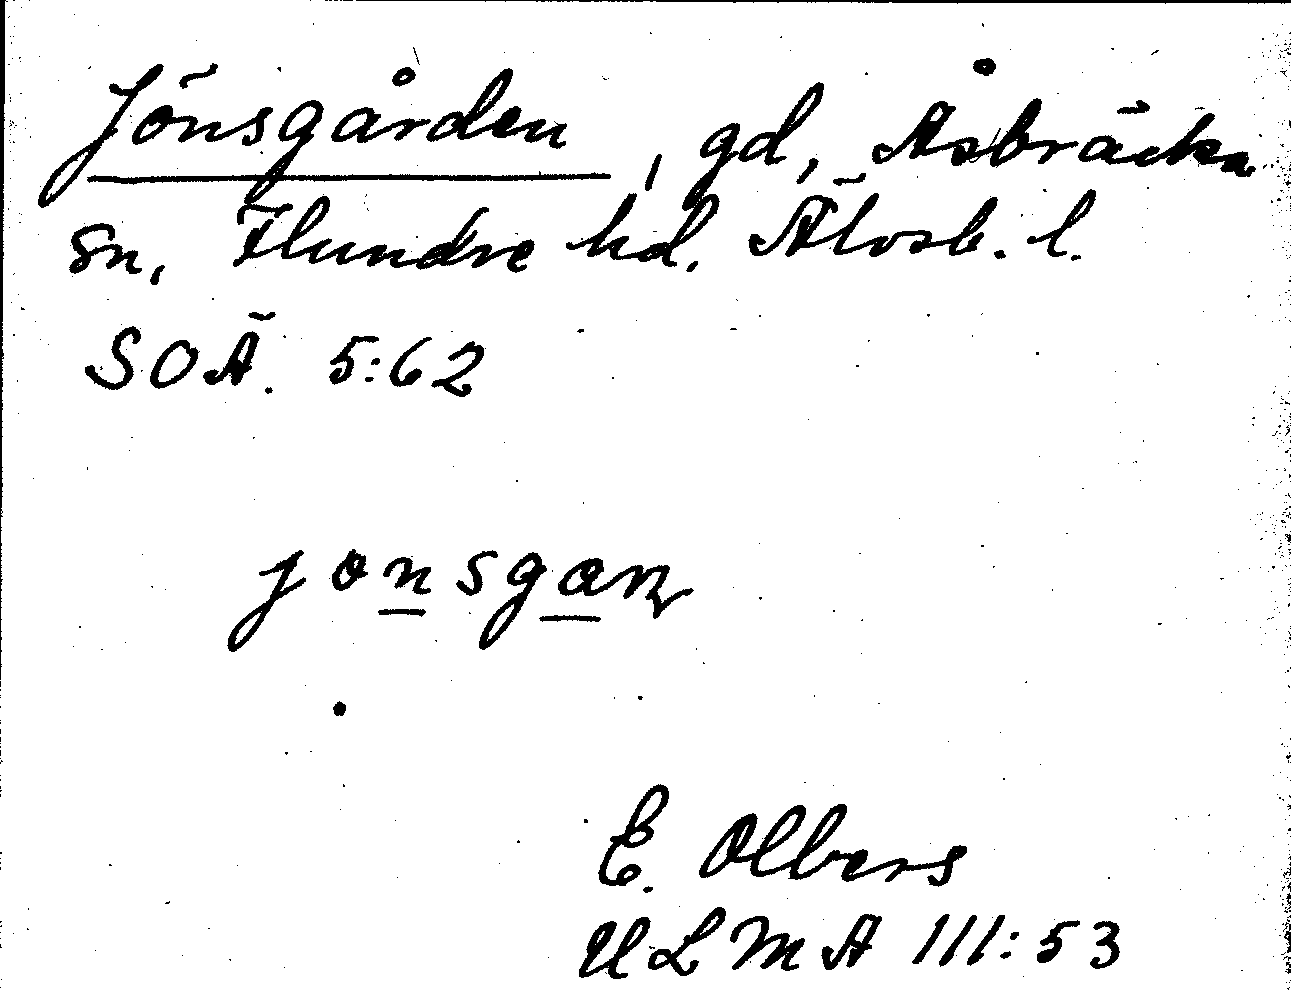 Jönsgården, gd, Åsbräcka
sn, Flundre hd. Älvsb. l.
SOÄ. 5:62
E. Olbers
ULMA 111:53